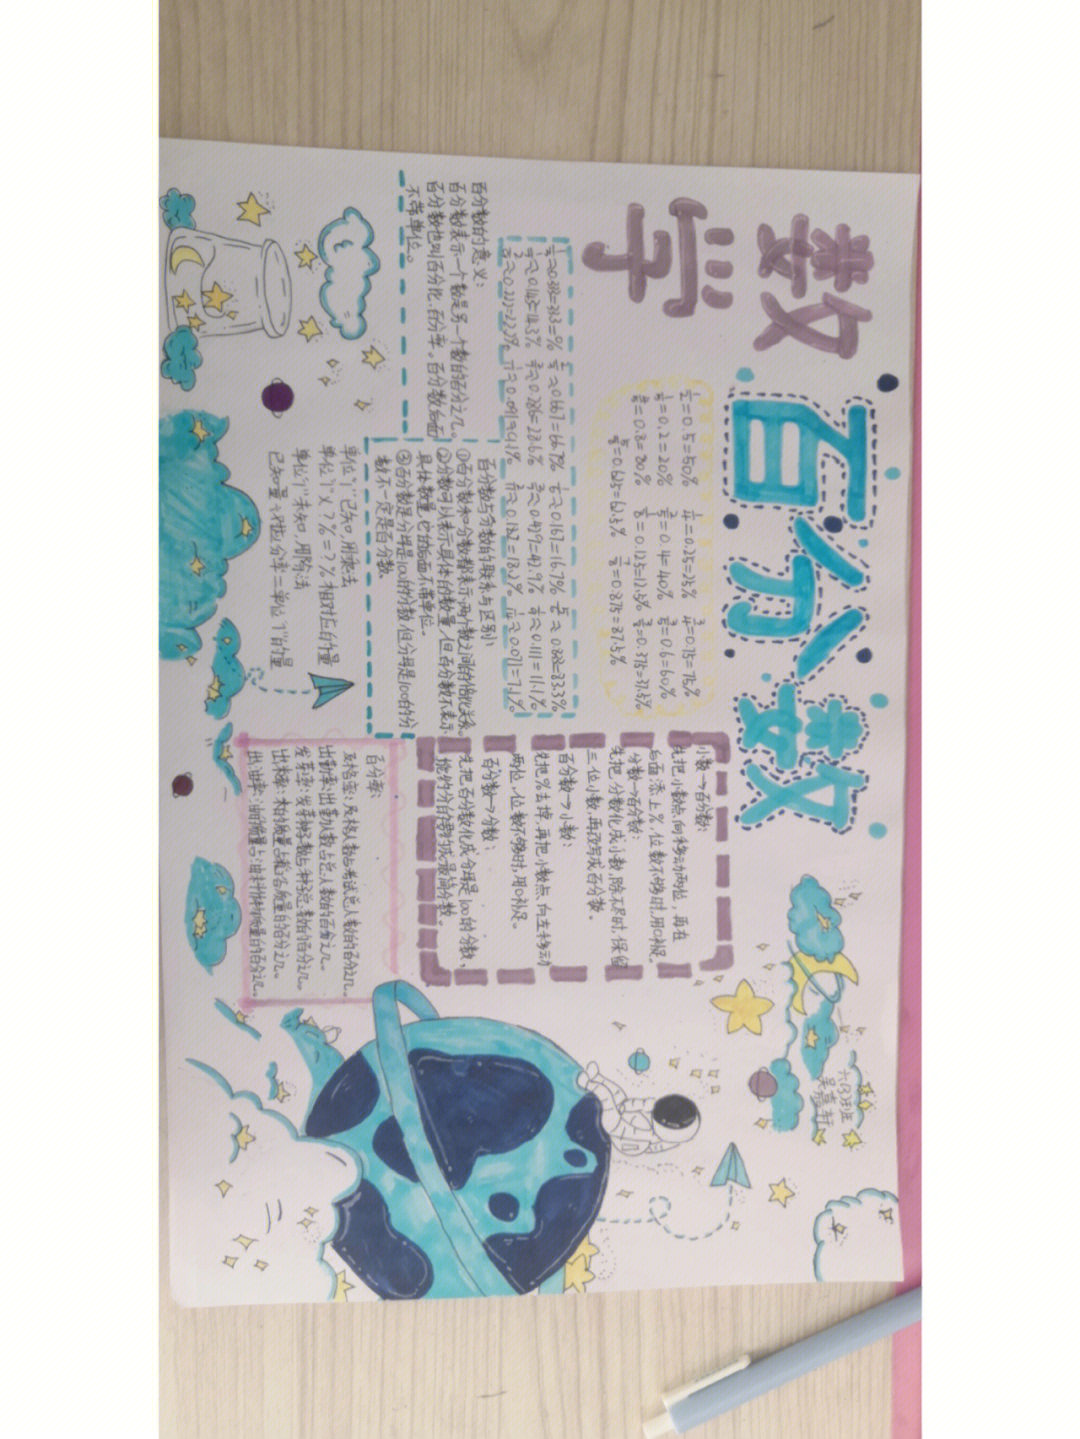 数学
百分数
六(3)班
吴嘉轩
1/2=0.5=50% 1/4=0.25=25% 3/4=0.75=75%
1/5=0.2=20% 2/5=0.4=40% 3/5=0.6=60%
4/5=0.8=80% 1/8=0.125=12.5% 3/8=0.375=37.5%
5/8=0.625=62.5% 7/8=0.875=87.5%
1/3≈0.333=33.3=% 2/3≈0.667=66.7% 1/6≈0.167=16.7% 5/6≈0.833=83.3%
1/7≈0.143=14.3% 2/7≈0.286=28.6% 3/7≈0.429=42.9% 1/9≈0.111=11.1%
2/9≈0.222=22.2% 1/11≈0.091=9.1% 2/11≈0.182=18.2% 1/14≈0.071=7.1%
百分数的意义:
百分数表示一个数是另一个数的百分之几。
百分数也叫百分比、百分率。百分数后面
不带单位。
百分数与分数的联系与区别:
①百分数和分数都表示两个数之间的倍比关系。
②分数可以表示具体的数量,但百分数不表示
具体数量,它的后面不带单位。
③百分数是分母是100的分数,但分母是100的分
数不一定是百分数.
单位“1”已知,用乘法
单位“1”×?%=?%相对应的量
单位“1”未知,用除法
已知量÷对应分率=单位“1”的量
小数→百分数:
先把小数点向右移动两位,再在
后面添上%,位数不够时,用0补足。
分数→百分数:
先把分数化成小数,除不尽时,保留
三位小数,再改写成百分数。
百分数→小数:
先把%去掉,再把小数点向左移动
两位,位数不够时,用0补足。
百分数→分数:
先把百分数化成分母是100的分数,
能约分的要约成最简分数。
百分率:
及格率:及格人数占考试总人数的百分之几。
出勤率:出勤人数占总人数的百分之几。
发芽率:发芽种子数占种子总数的百分之几。
出米率:米的质量占稻谷质量的百分之几。
出油率:油的质量占油料作物质量的百分之几。